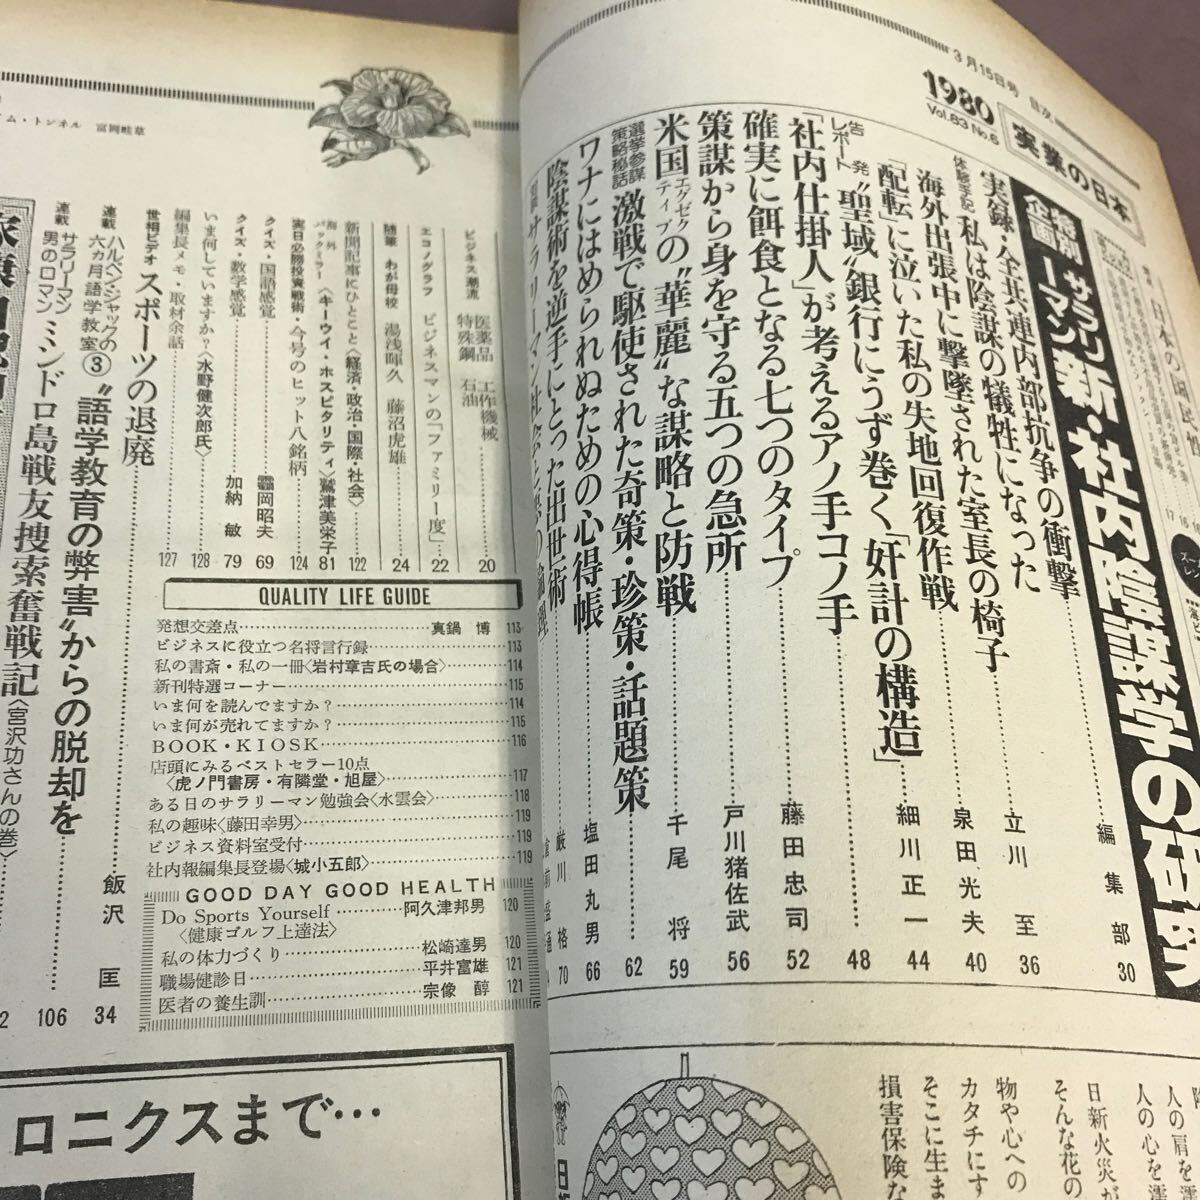 3月15日号 目次
1980
Vol.83 No.6
実業の日本
特別企画 サラリーマン新・社内陰謀学の研究
実録・全共連内部抗争の衝撃 編集部 30
体験手記 私は陰謀の犠牲になった 立川 至 36
海外出張中に撃墜された室長の椅子 泉田光夫 40
「配転」に泣いた私の失地回復作戦 細川正一 44
告発レポート “聖域”銀行にうず巻く「奸計の構造」 48
「社内仕掛人」が考えるアノ手コノ手 藤田忠司 52
確実に餌食となる七つのタイプ 戸川猪佐武 56
策謀から身を守る五つの急所 千尾 将 59
米国エグゼクティブの“華麗”な謀略と防戦 62
選挙参謀策略秘話 激戦で駆使された奇策・珍策・話題策 塩田丸男 66
ワナにはめられぬための心得帳 厳川 格 70
陰謀術を逆手にとった出世術
サラリーマン社会と悪の論理
ビジネス潮流 医薬品 工作機械 特殊鋼 石油 20
エコノグラフ ビジネスマンの「ファミリー度」 22
随筆 わが母校 湯浅暉久 藤沼虎雄 24
新聞記事にひとこと〈経済・政治・国際・社会〉 122
海外バックミラー〈キーウイ・ホスピタリティ〉鷲津美栄子 81
実日必勝投資戦術・今号のヒット八銘柄 124
クイズ・国語感覚 靍岡昭夫 69
クイズ・数学感覚 加納 敏 79
いま何していますか?〈水野健次郎氏〉 128
編集長メモ・取材余話 127
世相ビデオ スポーツの退廃
連載 ハルペン・ジャックの六カ月語学教室③ “語学教育の弊害”からの脱却を 飯沢 匡 34
連載 サラリーマン男のロマン ミンドロ島戦友捜索奮戦記〈宮沢功さんの巻〉 106
ム・トンネル 富岡畦草
QUALITY LIFE GUIDE
発想交差点 真鍋 博 113
ビジネスに役立つ名将言行録 113
私の書斎・私の一冊〈岩村章吉氏の場合〉 114
新刊特選コーナー 115
いま何を読んでますか? 114
いま何が売れてますか? 115
BOOK・KIOSK 116
店頭にみるベストセラー10点
〈虎ノ門書房・有隣堂・旭屋〉 117
ある日のサラリーマン勉強会〈水雲会〉 118
私の趣味〈藤田幸男〉 119
ビジネス資料室受付 119
社内報編集長登場〈城小五郎〉 119
GOOD DAY GOOD HEALTH
Do Sports Yourself 阿久津邦男 120
〈健康ゴルフ上達法〉
私の体力づくり 松崎達男 120
職場健診日 平井富雄 121
医者の養生訓 宗像 醇 121
ロニクスまで…
人の肩を
人の心を
日新火災が
そんな花の
物や心への
カタチにす
そこに生ま
損害保険な